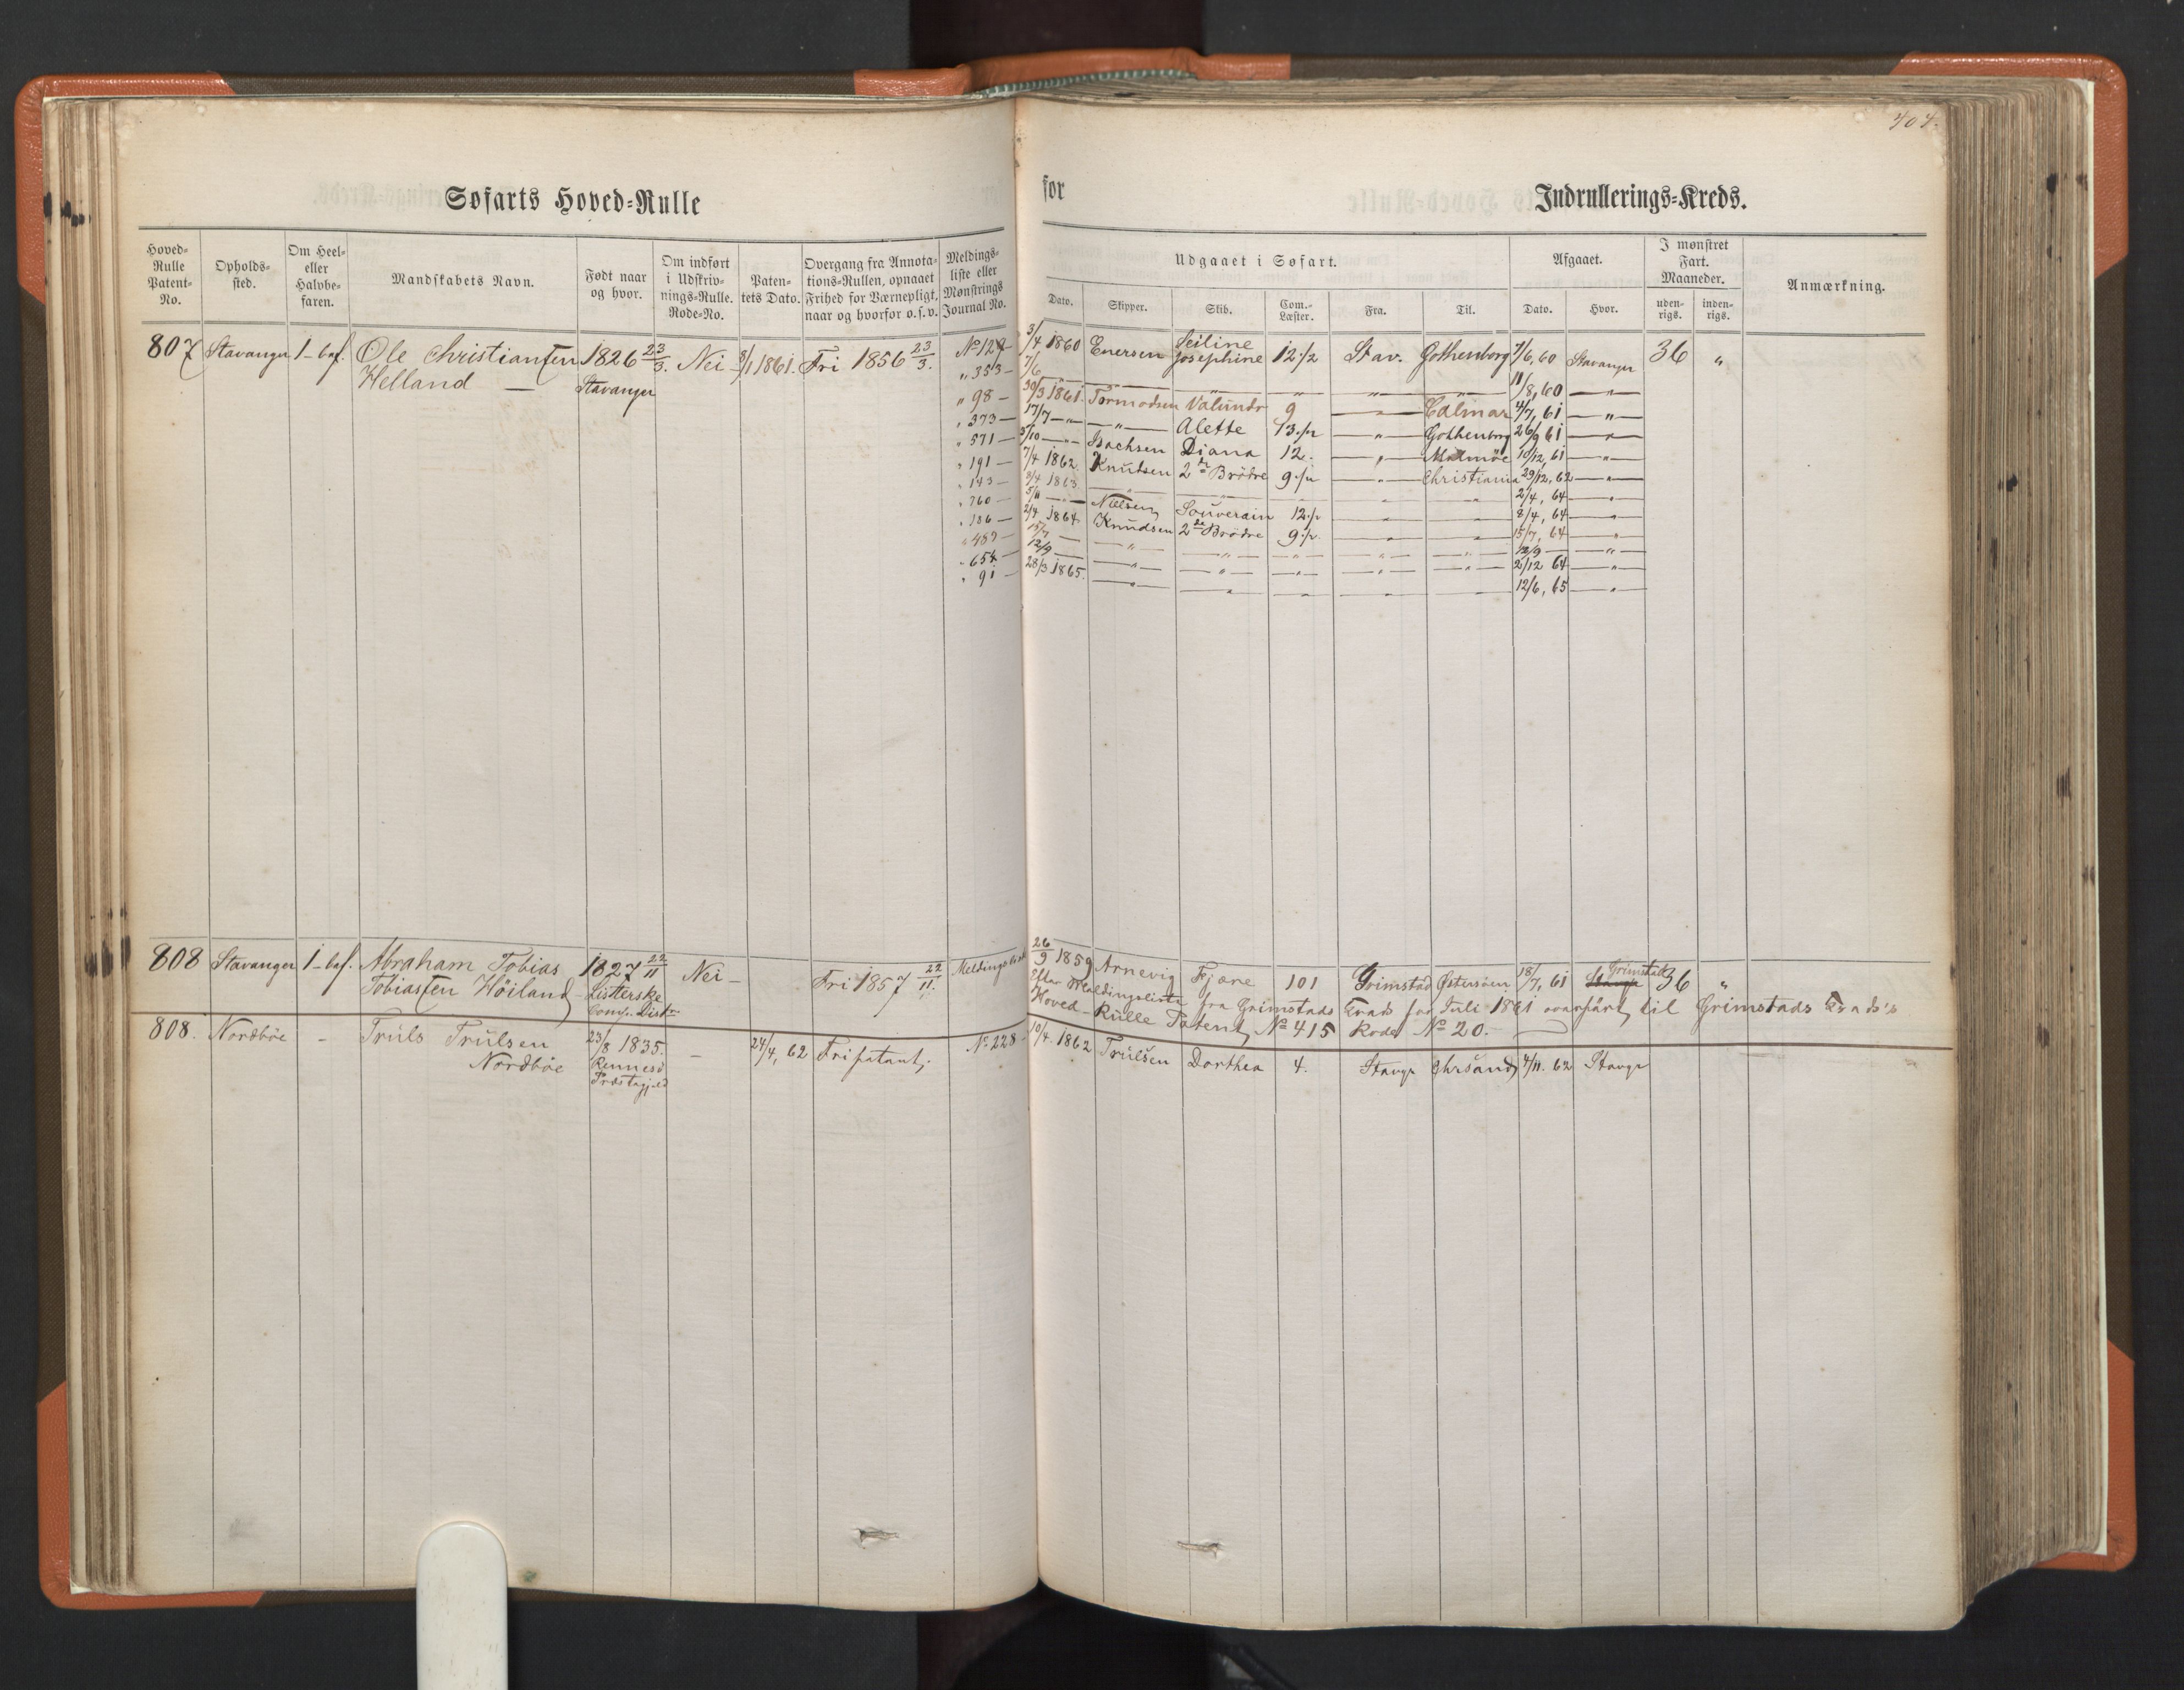 404.
Søfarts Hoved-Rulle for Indrullerings-Kreds.
Hoved-Rulle Patent-No. Opholds-sted. Om Heel- eller Halvbe-faren. Mandskabets Navn. Født naar og hvor. Om indført i Udskriv-nings-Rulle. Rode-No. Paten-tets Dato. Overgang fra Annota-tions-Rullen, opnaaet Frihed for Værnepligt, naar og hvorfor o.s.v. Meldings-liste eller Mønstrings Journal No.
Udgaaet i Søfart. Afgaaet. I mønstret Fart. Maaneder. Anmærkning.
Dato. Skipper. Skib. Com.-Læster. Fra. Til. Dato. Hvor. uden-rigs. inden-rigs.
807 Stavanger 1-bef. Ole Christiansen 1826 23/3. Nei 8/1 1861. Fri 1856 23/3. No 127 3/4 1860 Enersen Seiline Josephine 12 1/2 Stav. Gothenborg 7/6, 60 Stavanger 36 "
Helland — Stavanger
" 353 — 7/6 — " — — " — — " — — " — 11/8, 60 — " —
" 98 — 30/3 1861. Tormodsen Valundr 9 — " — Calmar 4/7, 61 — " —
" 373 — 17/7 — " — — " — Alette 13 1/2 — " — Gothenborg 26/9 61 — " —
" 571 — 3/10 — " — Isachsen Diana 12. — " — Malmöe 10/12, 61 — " —
" 191 — 7/4 1862. Knutsen 2de Brödre 9 1/2 — " — Christiania 29/12, 62 — " —
" 143 — 9/4 1863. — " — — " — — " — 2/4, 64 — " —
" 760 — 5/11 — " — Nielsen Souverain 12 1/2 — " — — " — 8/4, 64 — " —
" 186 — 2/4 1864 Knudsen 2de Brödre 9 1/2 — " — — " — 15/7, 64 — " —
" 489 — 15/7 — — " — — " — — " — — " — — " — 12/9 — — " —
" 654 — 12/9 — — " — — " — — " — — " — — " — 2/12 64 — " —
" 91 — 28/3 1865. — " — — " — — " — — " — — " — 12/6, 65 — " —
808 Stavanger 1-bef. Abraham Tobias 1827 22/11 Nei — Fri 1857 22/11. Meldingsliste 26/9 1859 Arnevig Fjære 101 Grimstad Östersöen 18/7, 61 Stavgr Grimstad 36 "
Tobiassen Höiland Listerske Comp. Distr.
Efter Meldingsliste fra Grimstads Kreds for Juli 1861 overfört til Grimstads Kreds's
Hoved-Rulle Patent No 415 Rode No 20. —
808. Nordböe — Truls Trulsen 23/8 1835. — 24/4, 62 Fripatent; No 228 10/4. 1862 Trulsen Dorthea 4. Stavgr Chrsand 4/11. 62 Stavgr
Nordböe Rennesö
Præstegjeld